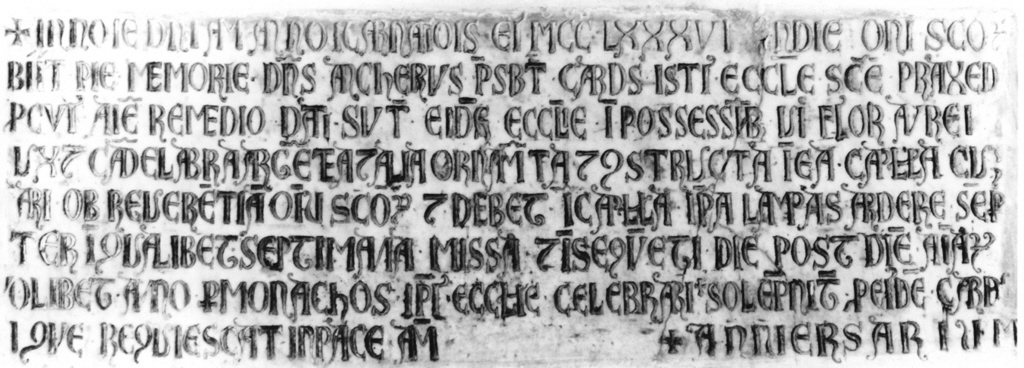 ✠ INNOIE DNI AM ANNO ICARNATOIS EI MCC LXXXVI INDIE ONI SCOR
BIIT PIE MEMORIE DNS ANCHERVS PSBT CARDS ISTI ECCLE SCE PRAXED
PCVI AIE REMEDIO DATI SVT EIDE ECCLE I POSSESSIB VI FLOR AVREI
CADELABRA ARGETEA 7 ALIA ORNAMTA 7 9STRUCTA IEA CAPLLA CUI
ARI OB REVERETIA ONI SCOR 7 DEBET ICAPLLA IPA LAMPAS ARDERE SEP
TER I QUALIBET SEPTIMANA MISSA 7 ISEQVETI DIE POST DIE AIAR
QOLIBET ANO P MONACHOS IPI ECCLIE CELEBRARI SOLEPNIT PEIDE CARD
IQVE REQVIESCAT INPACE AM ✠ ANNIERSARIUM